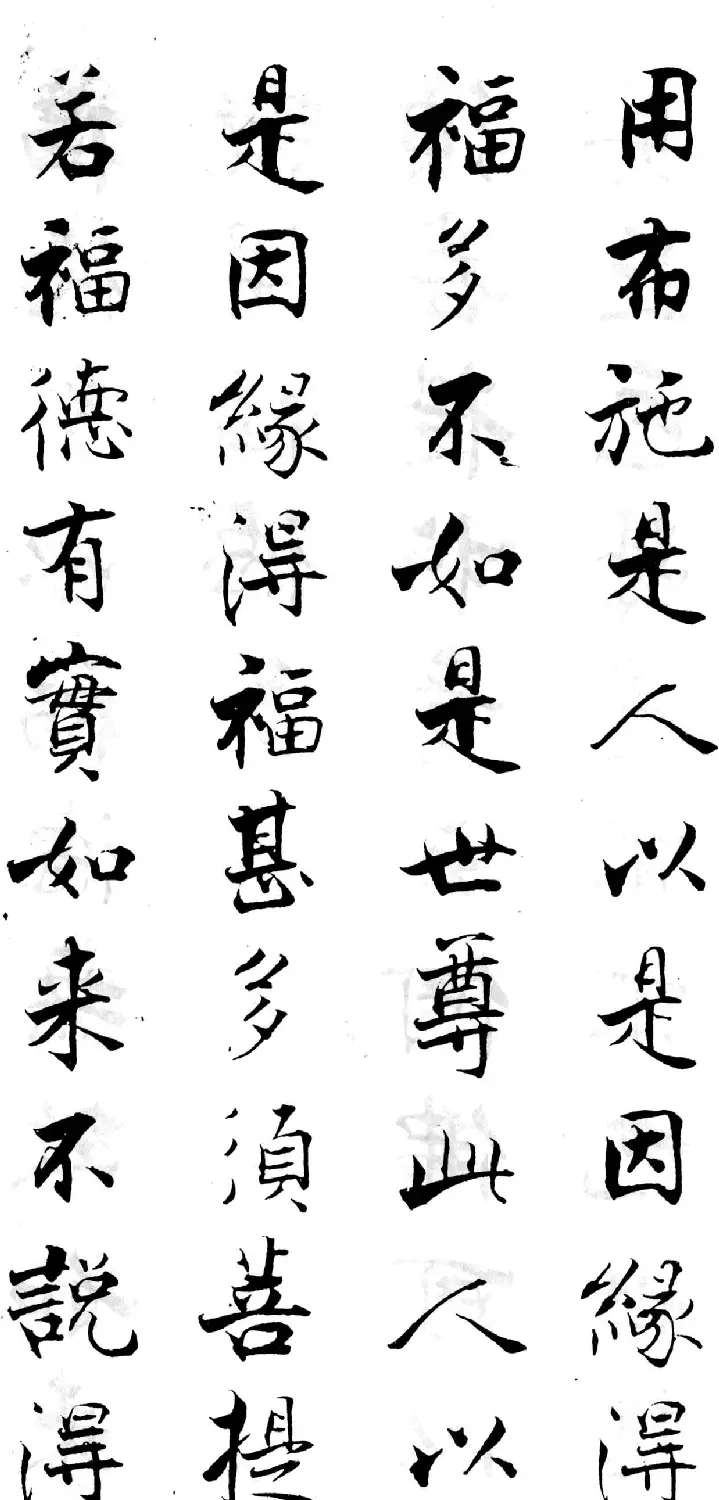 用布施是人以是因緣得
福多不如是世尊此人以
是因緣得福甚多須菩提
若福德有實如来不説得